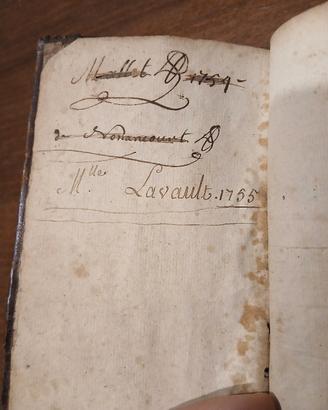 Mallet 1754
de Nonancourt
Mlle Lavault. 1755